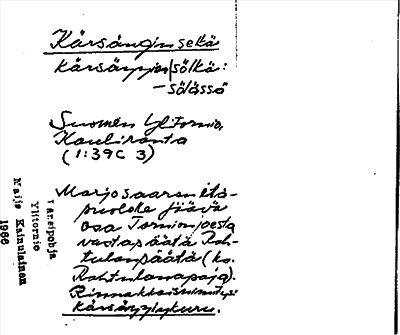 Kärsängin selkä
Kärsänjän|sölkä:
– sölässä
Suomen Ylitornio,
Kauliranta
(1:39C 3)
Marjosaaren itä-
puolelle jäävä
osa Tornionjoesta
vastapäätä Roh-
tulanpäätä (ks.
Rohtulanapaja).
Rinnakkaisnimitys:
Länsipohja
Ylitornio
Maija Kainulainen
1966